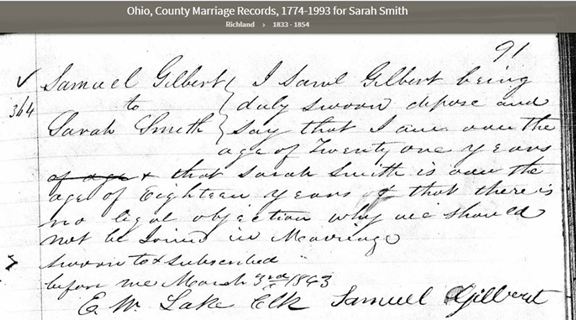 Ohio, County Marriage Records, 1774-1993 for Sarah Smith
Richland › 1833 - 1854
91
Samuel Gilbert { I Saml Gilbert being
364 to { duly sworn depose and
Sarah Smith { say that I am over the
age of Twenty one years
of age & that Sarah Smith is over the
age of Eighteen years & that there is
no legal objection why we should
not be Joined in Marriage
Sworn to & subscribed
before me March 3rd 1843
E. W. Lake Clk Samuel Gilbert